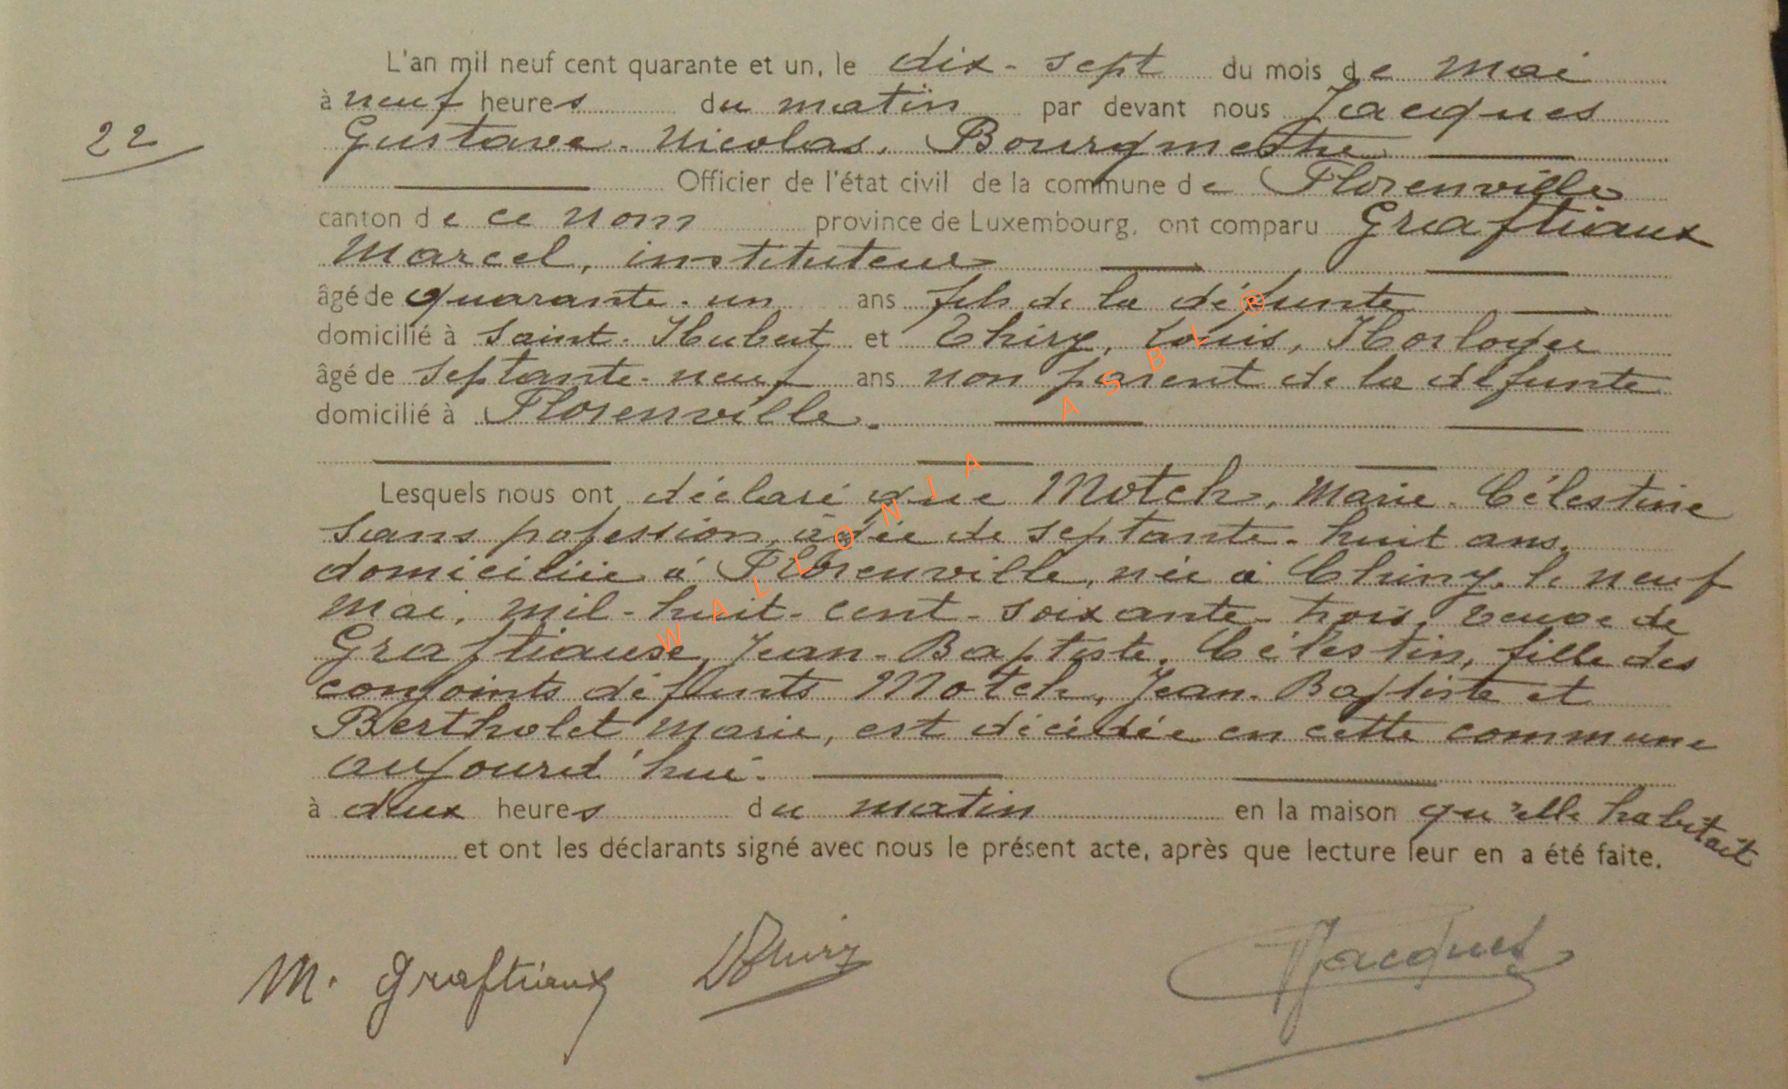 L'an mil neuf cent quarante et un, le dix-sept du mois de mai
à neuf heures du matin par devant nous Jacques
22
Gustave-Nicolas, Bourgmestre
Officier de l'état civil de la commune de Florenville
canton de ce nom province de Luxembourg, ont comparu Graftiaux
Marcel, instituteur
âgé de quarante-un ans fils de la défunte
domicilié à Saint-Hubert et Thiry, Louis, Horloger
âgé de septante-neuf ans non parent de la défunte
domicilié à Florenville.
Lesquels nous ont déclaré que Motch, Marie-Célestine
sans pofession, âgée de septante-huit ans,
domiciliée à Florenville, née à Chiny, le neuf
mai, mil-huit-cent-soixante-trois, veuve de
Graftiause, Jean-Baptiste, Célestin, fille des
conjoints défunts Motch, Jean-Baptiste et
Bertholet Marie, est décédée en cette commune
aujourd'hui.
à deux heures du matin en la maison qu'elle habitait
et ont les déclarants signé avec nous le présent acte, après que lecture leur en a été faite.
M. Graftiaux LThiry Jacques
WALLONIA ASBL ®